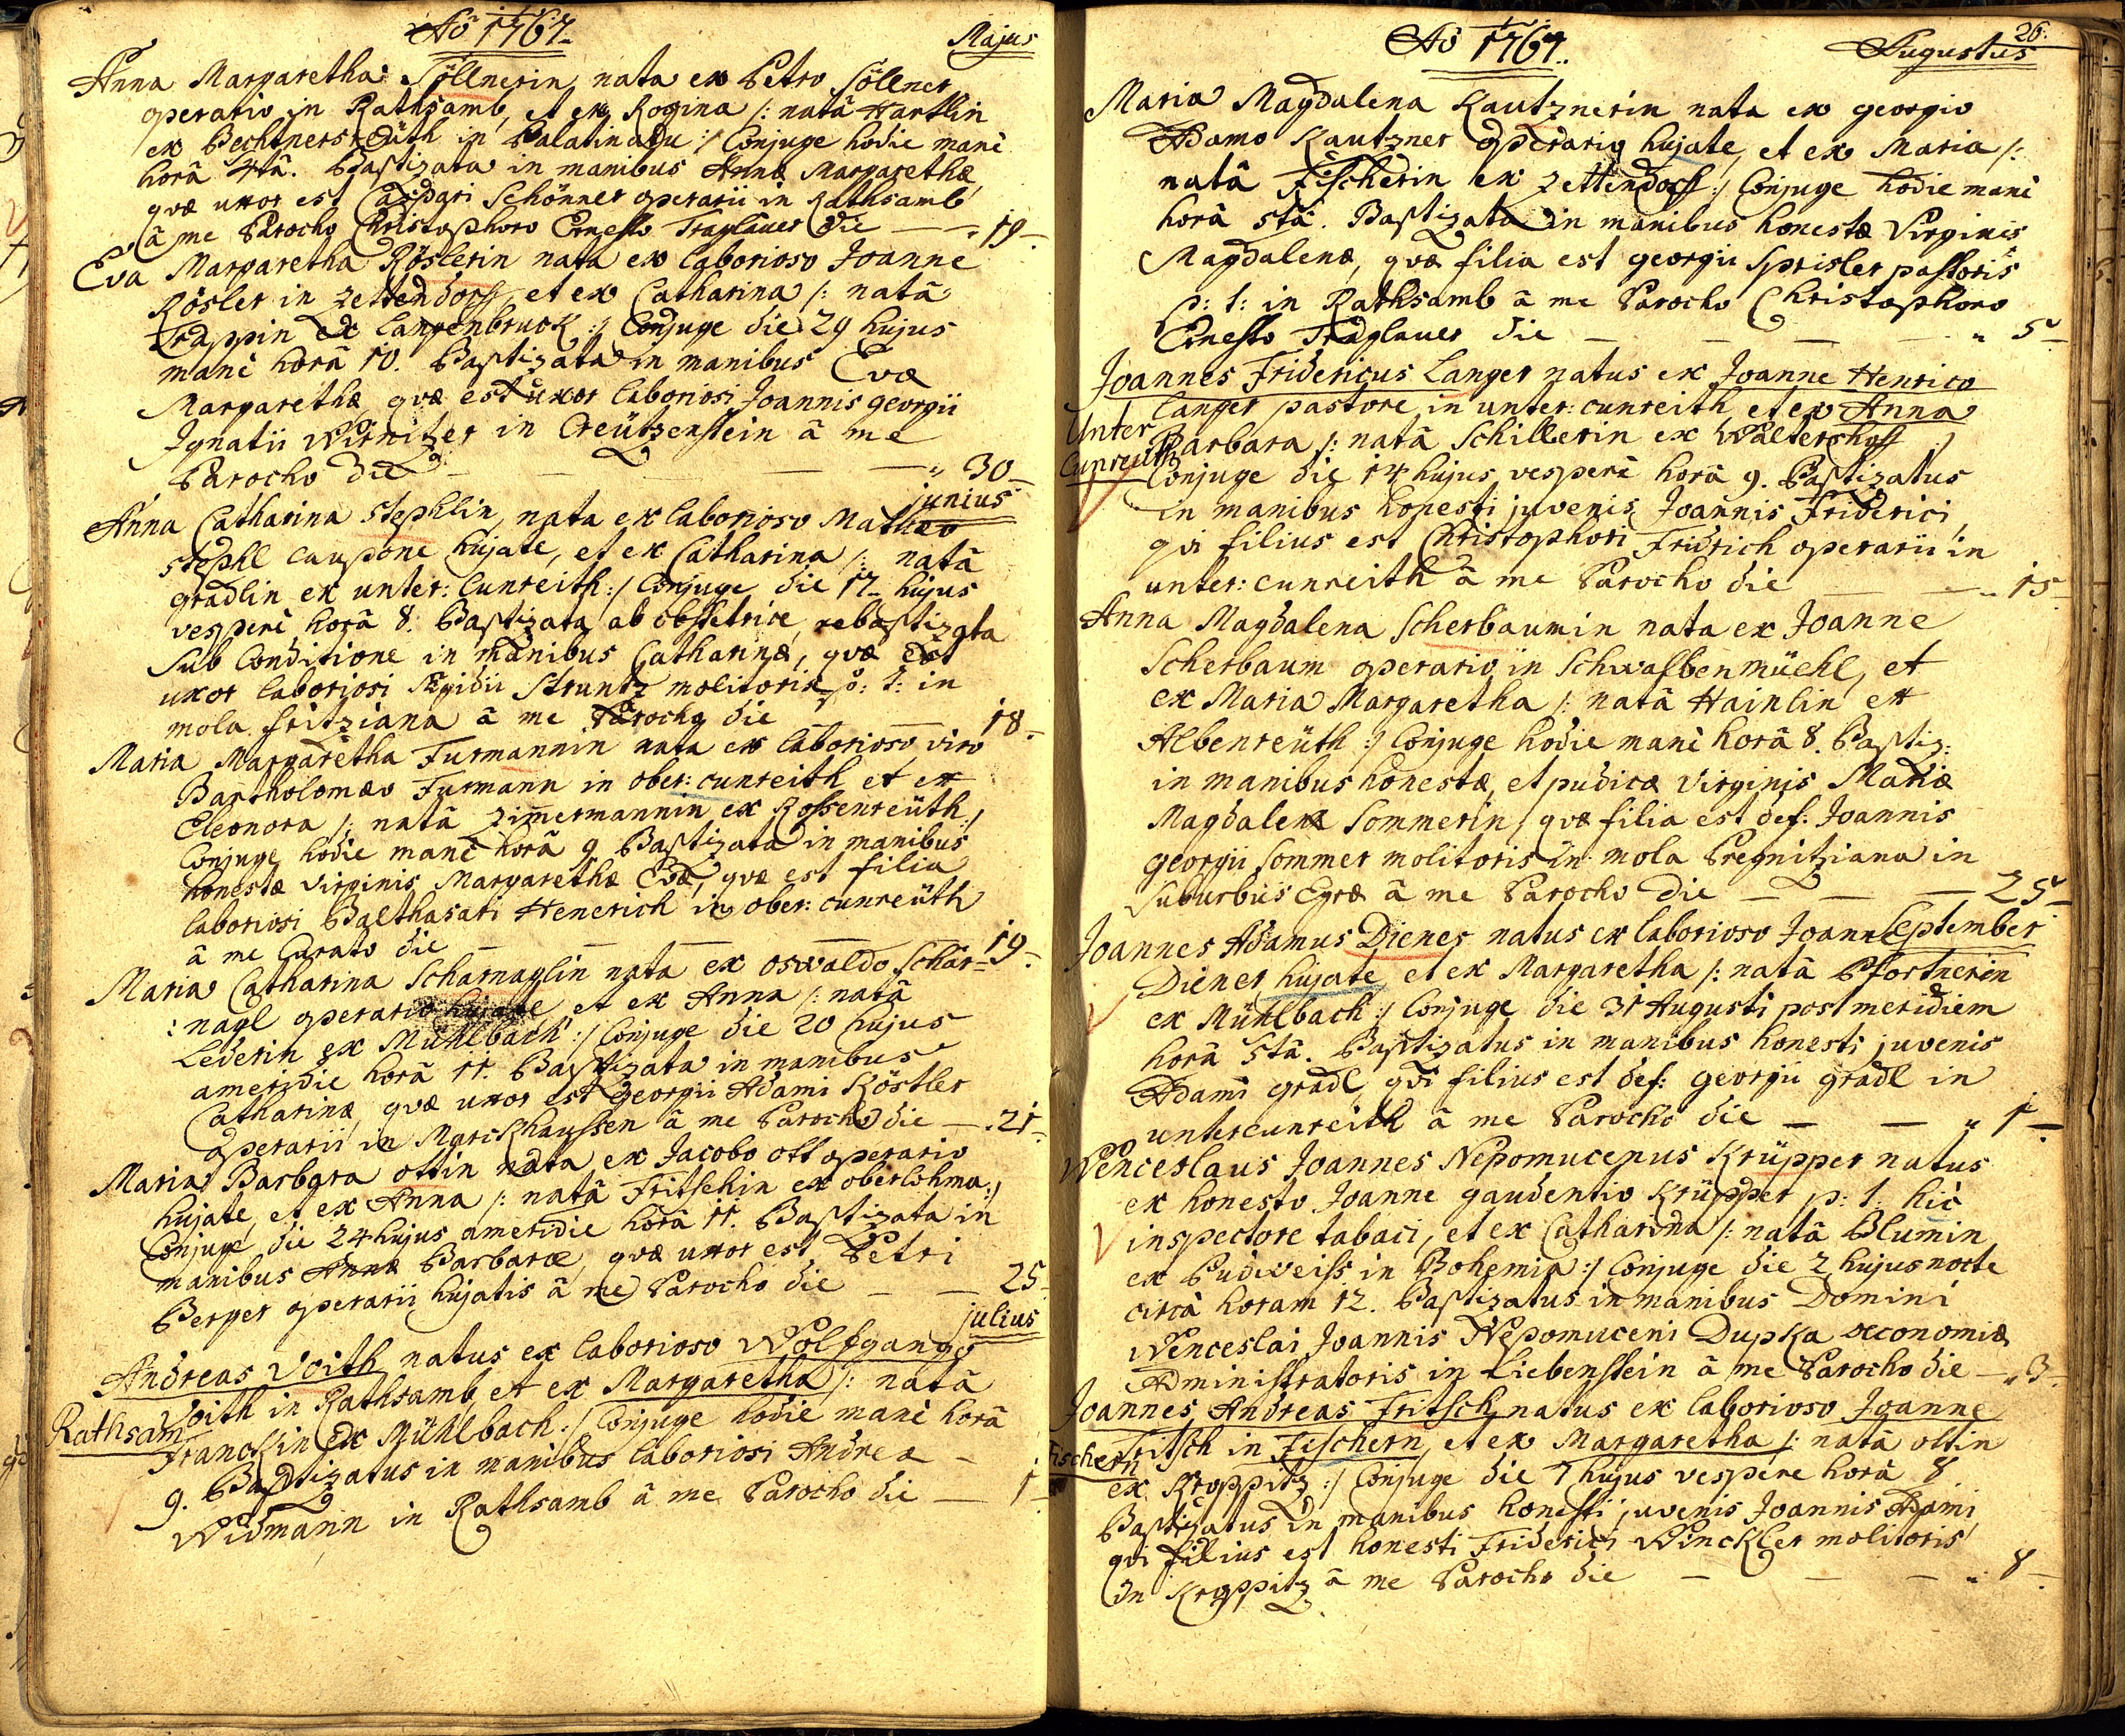 Aō 1767.
Majus
Anna Margaretha Söllnerin nata ex Petro Söllner
operario in Rathsamb, et ex Rogina /: natâ Hartlin
ex Pechtnersreüth in Palatinatu :/ Conjuge hodie manè
horâ 4tâ. Baptizata in manibus Annæ Margarethæ
qvæ uxor est Caspari Schönner operarii in Rathsamb
â me Parocho Christophoro Ernesto Traglauer die — „ 19.
Eva Margaretha Röslerin nata ex laborioso Joanne
Rösler in Zettendorff, et ex Catharina /: natâ
Trappin ex Langenbruck :/ Conjuge die 29 hujus
manè horâ 10. Baptizata in manibus Evæ
Margarethæ qvæ est uxor laboriosi Joannis georgii
Jgnatii Wirnitzer in Creützenstein â me
Parocho die — — — „ 30.
junius
Anna Catharina Stephlin, nata ex laborioso Mathæo
Stephl caupone hujate, et ex Catharina /: natâ
gradlin ex unter: Cunreith :/ Conjuge die 17 hujus
vesperi horâ 8. Baptizata ab obstetrice, rebaptizata
sub Conditione in manibus Catharinæ, qvæ est
uxor laboriosi Ægidii Struntz molitoris p: t: in
mola fritziana â me Parocho die — — 18.
Maria Margaretha Furmannin nata ex laborioso viro
Bartholomæo Furmann in ober: cunreith et ex
Eleonora /: natâ Zimermannin ex Rossenreüth :/
Conjuge hodie manè horâ 9 Baptizata in manibus
honestæ virginis Margarethæ Evæ, qvæ est filia
laboriosi Balthasari Henerich in ober: cunreüth
â me Curato die — — — — 19.
Maria Catharina Scharnaglin nata ex oswaldo Schar=
: nagl operario hujate et ex Anna /: natâ
Lederin ex Mühlbach :/ Conjuge die 20 hujus
ameridie horâ 11. Baptizata in manibus
Catharinæ, qvæ uxor est georgii Adami Köstler
operarii in Marckhaussen â me Parocho die — . 21.
Maria Barbara ottin nata ex Jacobo ott operario
hujate, et ex Anna /: natâ Fritschin ex oberlohma :/
Conjuge die 24 hujus ameridie horâ 11. Baptizata in
manibus Annæ Barbaræ, qvæ uxor est Petri
Berger operarii hujatis â me Parocho die — — 25.
julius
Andreas Voith natus ex laborioso Wolfgango
Voith in Rathsamb, et ex Margaretha /: natâ
Rathsam
Franckin ex Mühlbach :/ Conjuge hodie manè horâ
9. Baptizatus in manibus laboriosi Andreæ —
Widmann in Rathsamb â me Parocho die — 1.
26.
Aō 1767.
Augustus
Maria Magdalena Kautznerin nata ex georgio
Adamo Kautzner operario hujate, et ex Maria /:
natâ Fischerin ex Zettendorff :/ Conjuge hodie manè
horâ 5tâ. Baptizata in manibus honestæ Virginis
Magdalenæ, qvæ filia est georgii Sprisler pastoris
p: t: in Rathsamb â me Parocho Christophoro
Ernesto Traglauer die — — — „ 5.
Joannes Fridericus Langer natus ex Joanne Henrico
Langer pastore in unter: cunreith et ex Anna
Unter
Cunreüth
Barbara /: natâ Schillerin ex Waltershoff :/
Conjuge die 14 hujus vesperi horâ 9. Baptizatus
in manibus honesti juvenis Joannis Friderici,
qvi filius est Christophori Fridrich operarii in
unter: cunreith â me Parocho die — — „ 15.
Anna Magdalena Scherbaumin nata ex Joanne
Scherbaum operario in Schwalbenmüehl, et
ex Maria Margaretha /: natâ Hainlin ex
Albenreüth :/ Conjuge hodie manè horâ 8. Baptiz:
in manibus honestæ, et pudicæ virginis Mariæ
Magdalenæ Sommerin, qvæ filia est def: Joannis
georgii Sommer molitoris in mola Pregnitziana in
Suburbiis Egræ â me Parocho die — — — 25.
September
Joannes Adamus Diener natus ex laborioso Joanne
Diener hujate et ex Margaretha /: natâ Pfortnerin
ex Mühlbach :/ Conjuge die 31 Augusti post meridiem
horâ 5tâ. Baptizatus in manibus honesti juvenis
Adami gradl, qvi filius est def: georgii gradl in
untercunreith â me Parocho die — — „ 1.
Wenceslaus Joannes Nepomucenus Krüpper natus
ex honesto Joanne gaudentio Krüpper p: t: hic
inspectore tabaci, et ex Catharina /: natâ Blumin
ex Budweiss in Bohemia :/ Conjuge die 2 hujus nocte
circâ horam 12. Baptizatus in manibus Domini
Wenceslai Joannis Nepomuceni Dupka œconomiæ
Administratoris in Liebenstein â me Parocho die — „ 3.
Joannes Andreas Fritsch natus ex laborioso Joanne
Fritsch in Fischern, et ex Margaretha /: natâ ottin
Fischern
ex Kroppitz :/ Conjuge die 7 hujus vespere horâ 8.
Baptizatus in manibus honesti juvenis Joannis Adami,
qvi filius est honesti Friderici Winckler molitoris
in Kroppitz â me Parocho die — — — „ 8.